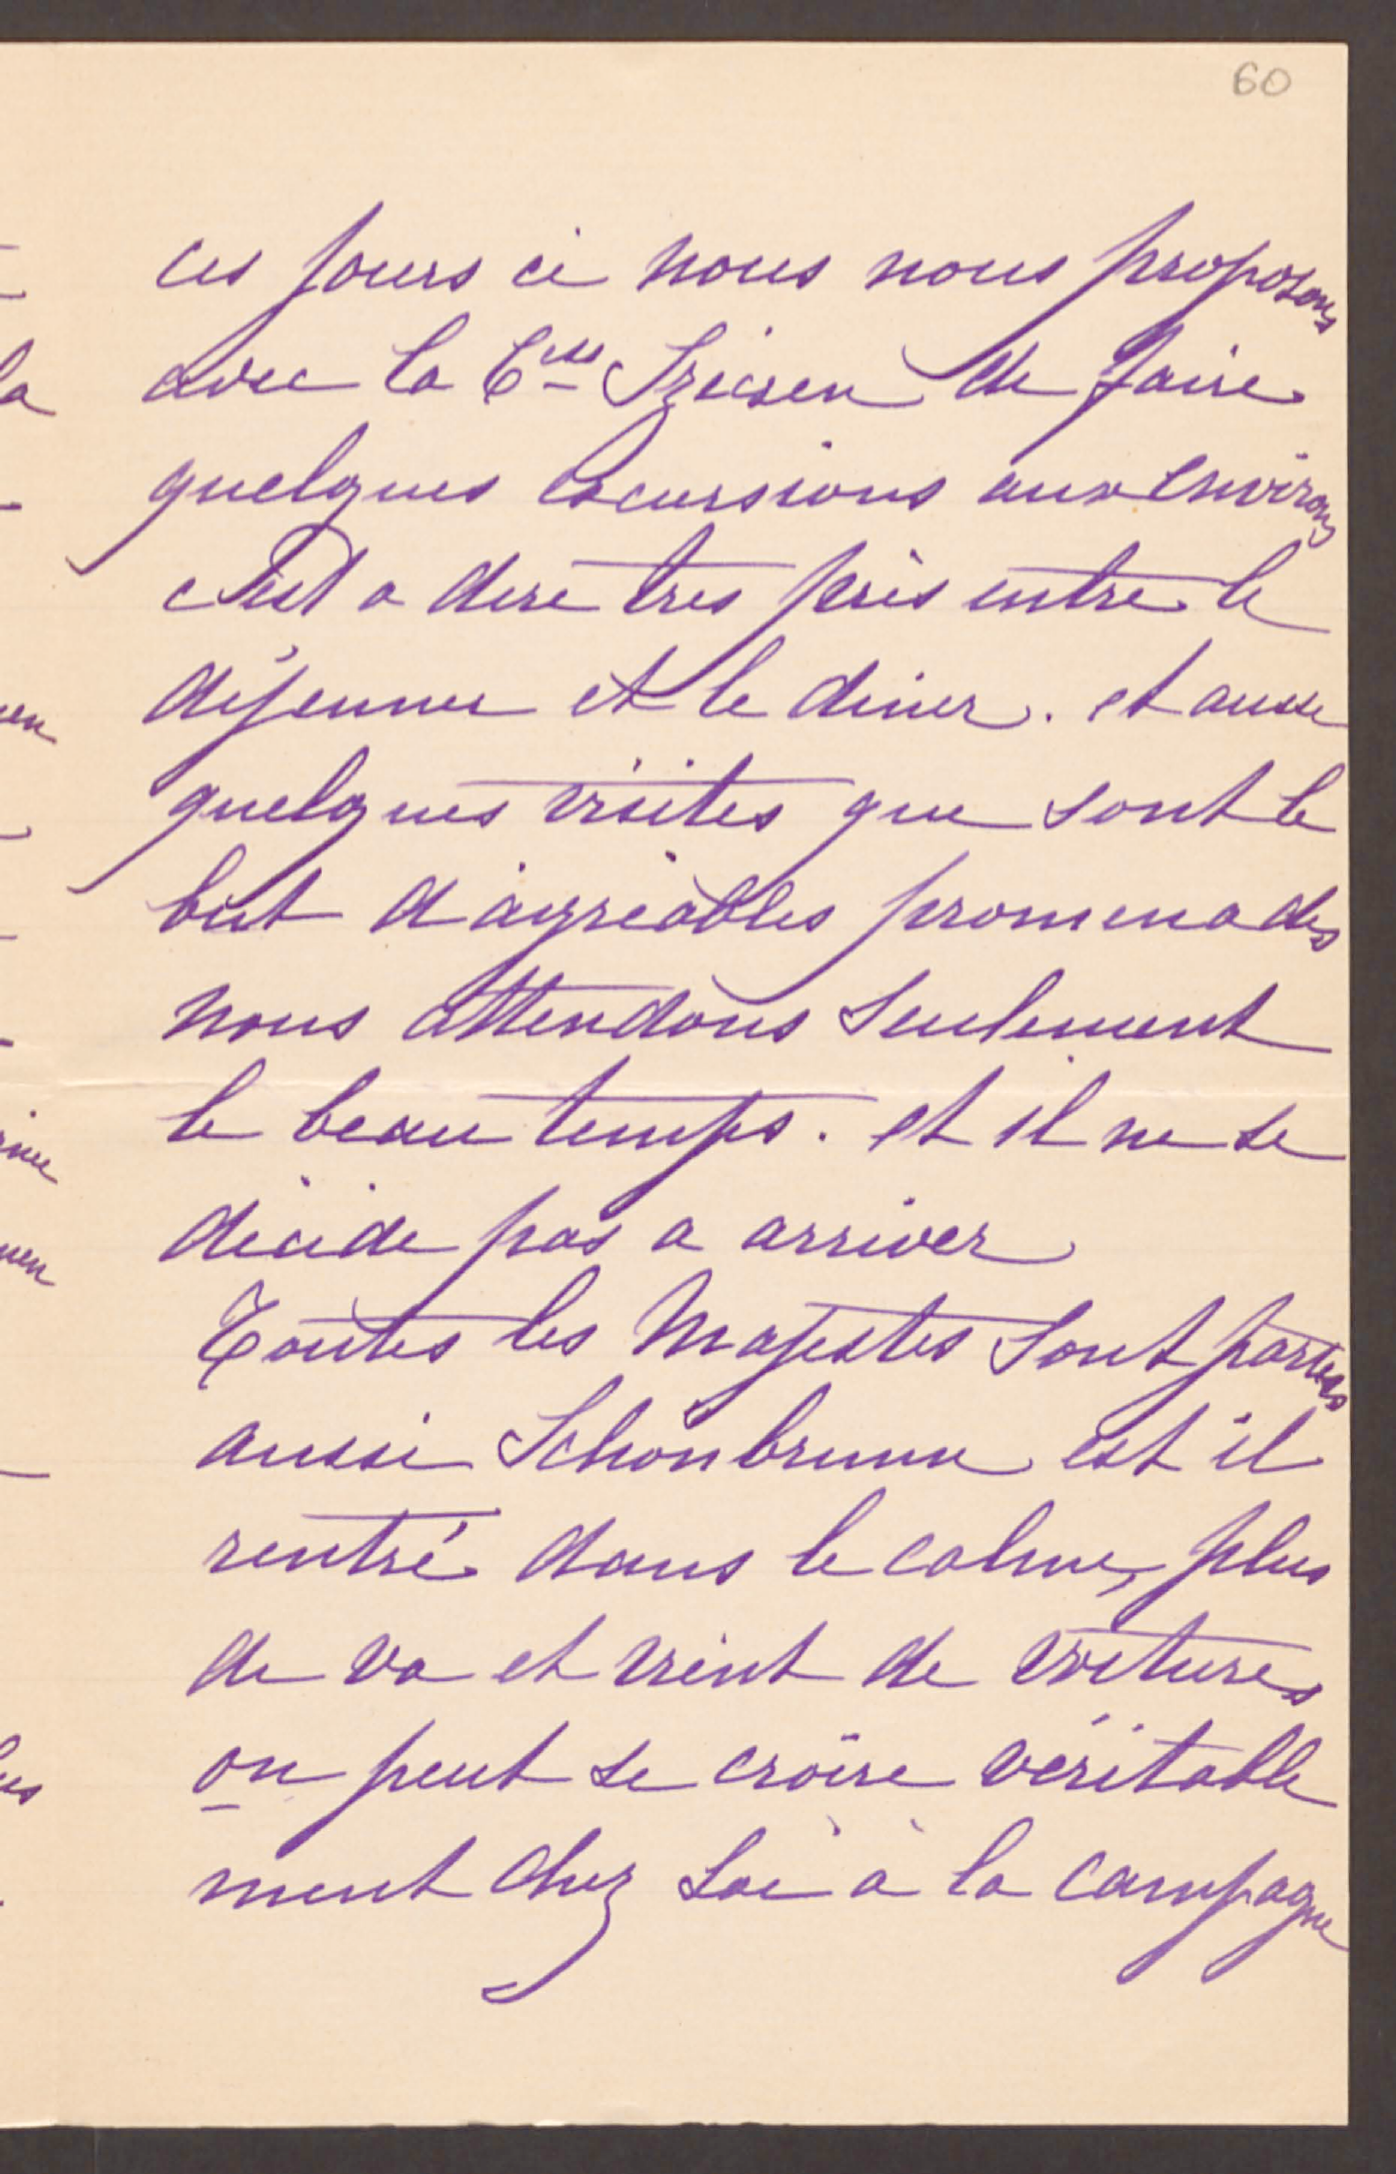 60
ces jours ci nous nous proposons
avec la Ctsse Szecsen de faire
quelques excursions aux environs
c'est a dire tres près entre le
déjeuner et le diner. et aussi
quelques visites que sont le
but d'agréables promenades
nous attendons seulement
le beau temps. et il ne se
décide pas a arriver
Toutes les Majestes sont parties
aussi Schönbrunn est il
rentré dans le calme, plus
de va et vient de voitures
on peut se croire véritable
ment chez soi à la campagne